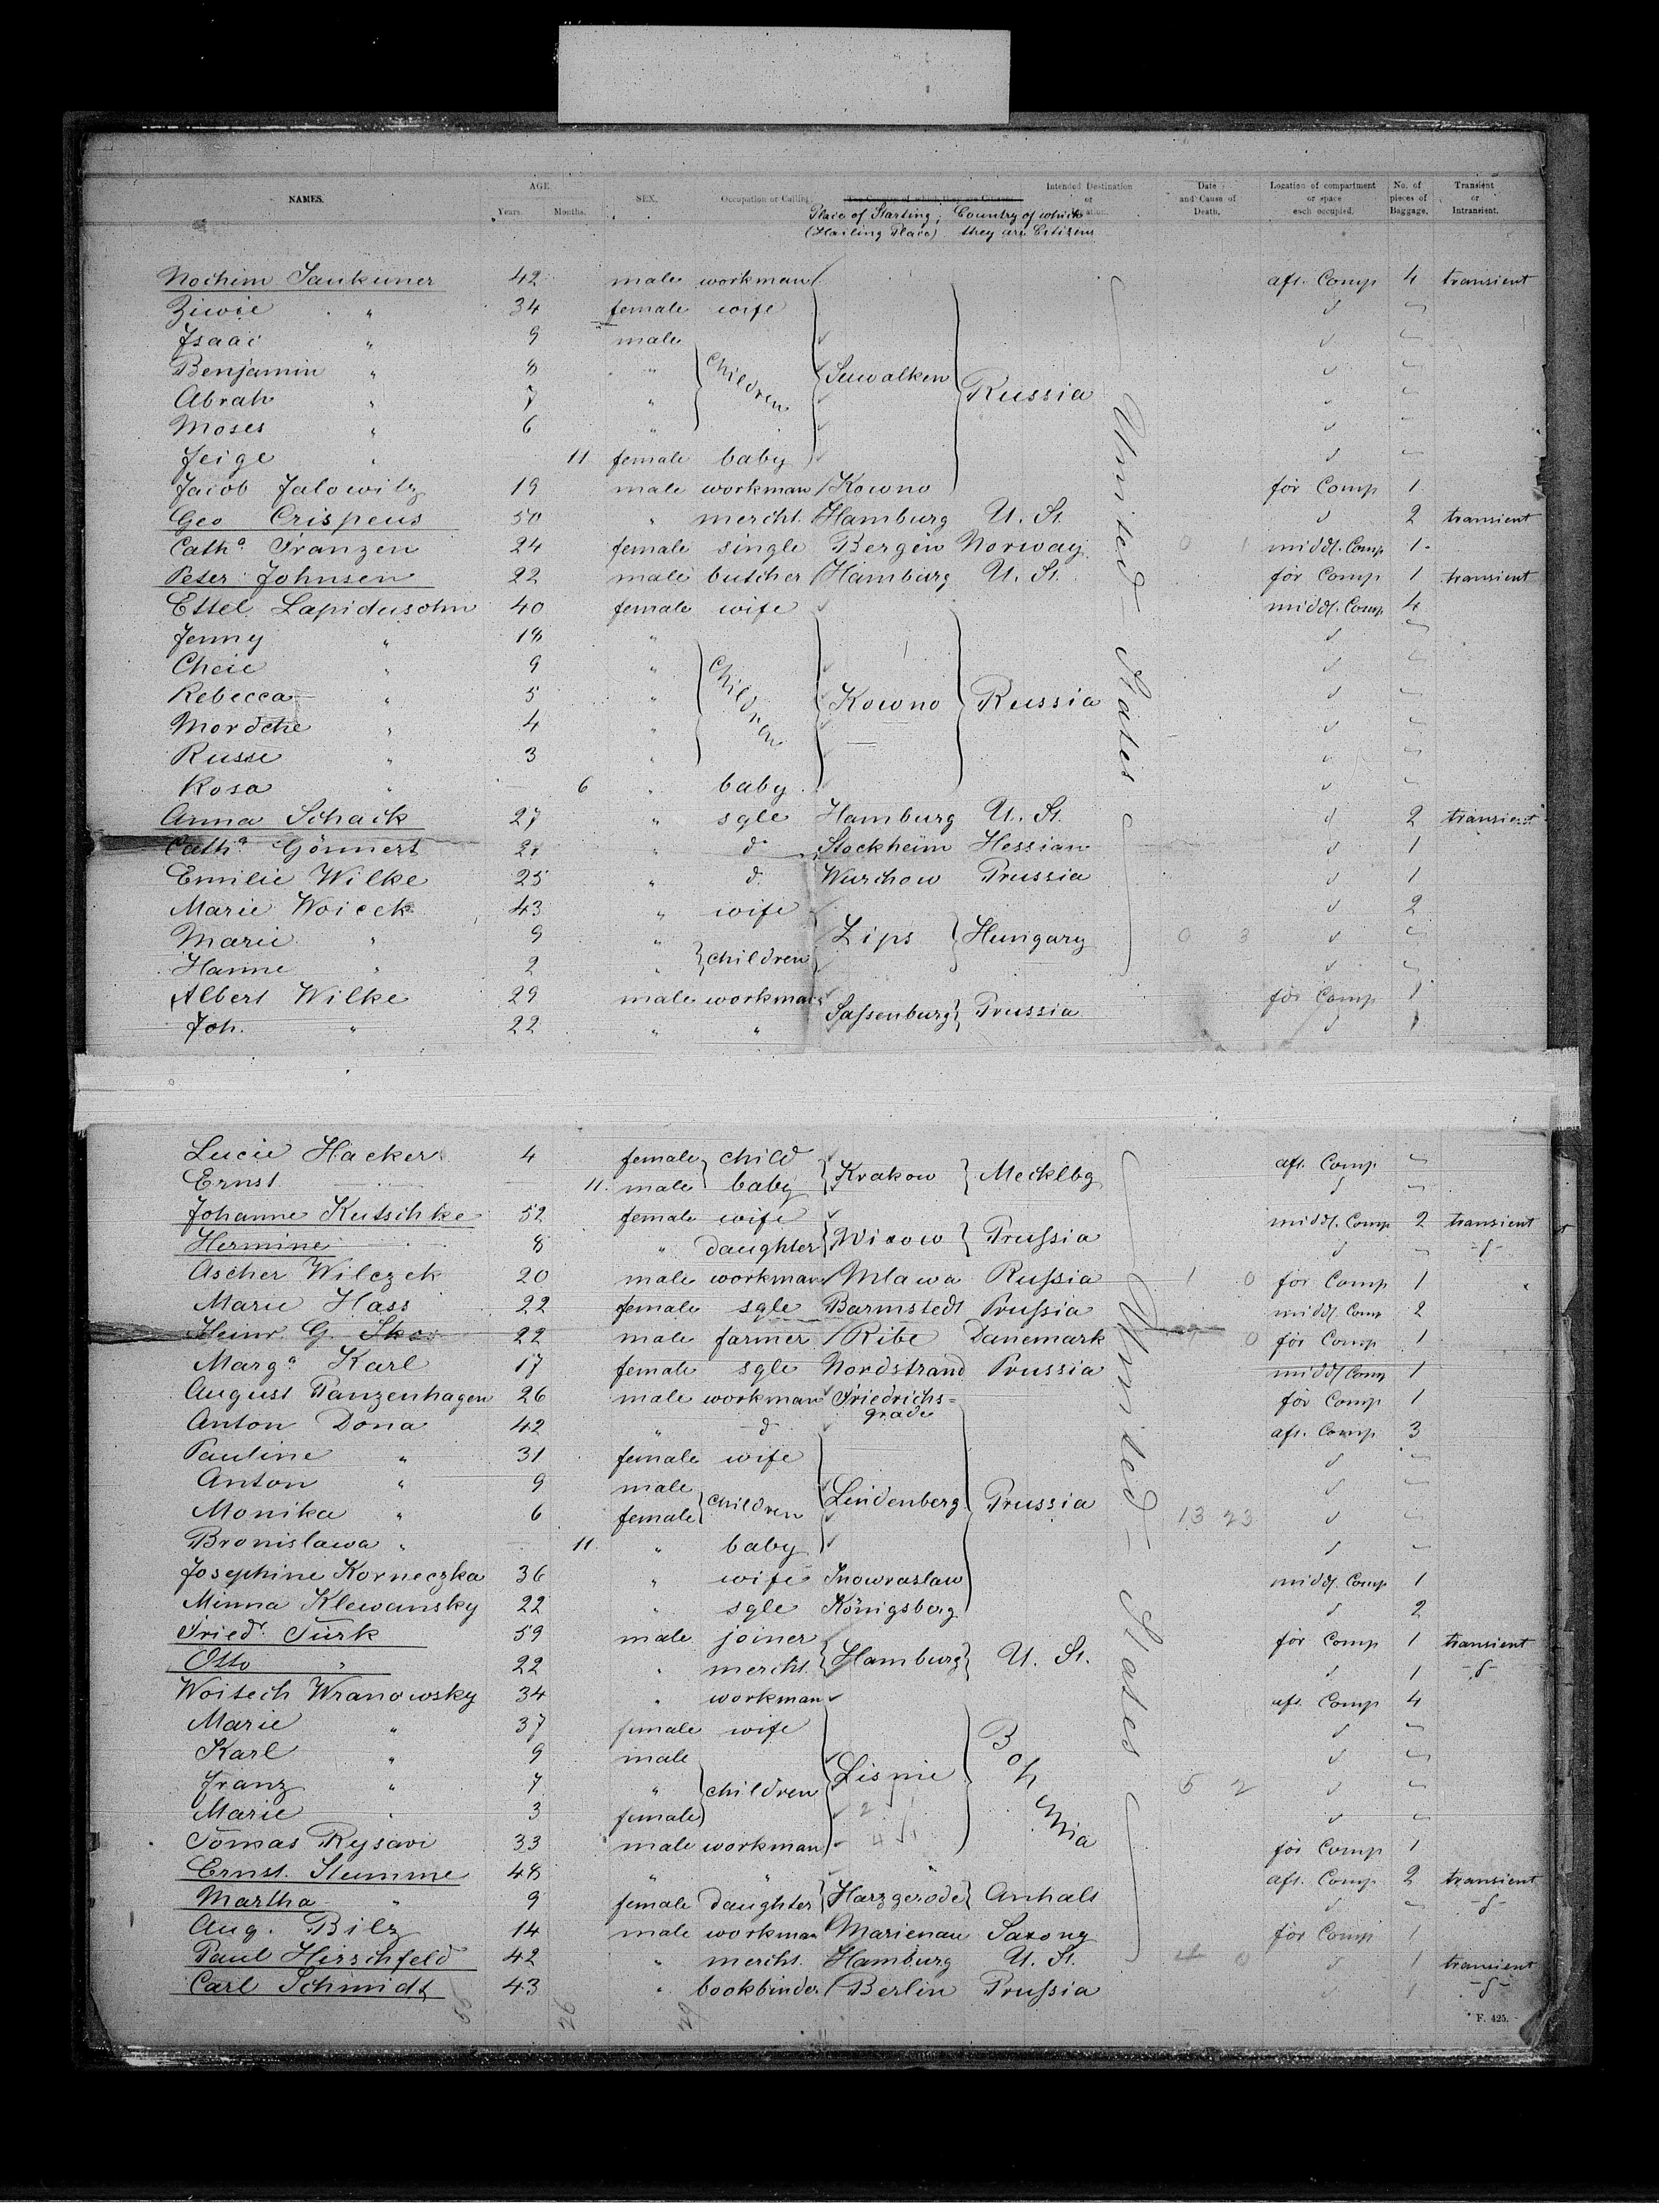 NAMES. AGE. Years. Months. SEX. Occupation or Calling. The Country of which they are Citizens. Intended Destination or Date and Cause of Death. Location of compartment or space each occupied. No. of pieces of Baggage. Transient or Intransient.
Place of Starting, Country of which
(Hailing Place) they are Citizens
Nochim 42 male workman aft. Comp 4 transient
Ziwie " 34 female wife d
Isaac " 9 male d
Benjamin " 8 " d
Abrah " 7 " children Suwalken Russia d
Moses " 6 " d
Feige " 11 female baby d
Jacob Jalowitz 19 male workman Kowno for Comp 1
Geo Crispens 50 " mercht. Hamburg U. St. d 2 transient
Cath.a Franzen 24 female single Bergen Norway 0 1 middl. Comp 1
Peter Johnsen 22 male butcher Hamburg U. St. for Comp 1 transient
Ettel Lapidusohn 40 female wife middl. Comp 4
Jenny " 18 " d
Cheie " 9 " d
Rebecca " 5 " children Kowno Russia d
Mordche " 4 " d
Russe " 3 " d
Rosa " 6 " baby d
Anna Schack 27 " sgle Hamburg U. St. d 2 transient
Cath.a Gönnert 21 " d Stockheim Hessian d 1
Emilie Wilke 25 " d Wurchow Prussia d 1
Marie Woicek 43 " wife d 2
Marie " 9 " Zips Hungary 0 3 d
Hanne " 2 " children d
Albert Wilke 29 male workman for Comp 1
Joh. " 22 " " Sassenburg Prussia d 1
United States
Lucie Hacker 4 female child aft. Comp
Ernst 11 male baby Krakow Mecklbg d
Johanne Kutschke 52 female wife middl. Comp 2 transient
Hermine 8 " daughter Prussia d -d-
Ascher Wilczek 20 male workman Mlawa Russia 1 0 for Comp 1
Marie Hass 22 female sgle Barmstedt Prussia middl Comp 2
Heinr. G. 22 male farmer Ribe Danemark 0 for Comp 1
Marg.a Karl 17 female sgle Nordstrand Prussia middl Comp 1
August Panzenhagen 26 male workman Friedrichs=
grade for Comp 1
Anton Dona 42 " d aft. Comp 3
Pauline " 31 female wife d
Anton " 9 male d
Monika " 6 female children Lindenberg Prussia 13 23 d
Bronislawa " 11 " baby d
Josephine Korneczka 36 " wife Inowraslaw middl. Comp 1
Minna Klewansky 22 " sgle Königsberg d 2
Fried. Türk 59 male joiner for Comp 1 transient
Otto " 22 " mercht. Hamburg U. St. d 1 -d-
Woitech Wranowsky 34 " workman aft. Comp 4
Marie " 37 female wife d
Karl " 9 male d
Franz " 7 " children Bohmia 5 2 d
Marie " 3 female d
Tomas Rysavi 33 male workman for Comp 1
Ernst. Stumme 48 " " aft. Comp 2 transient
Martha " 9 female daughter Harzgerode Anhalt d -d-
Aug. Bilz 14 male workman Marienau Saxony for Comp 1
Paul Hirschfeld 42 " mercht. Hamburg U. St. 0 d 1 transient
Carl Schmidt 43 " bookbinder Berlin Prussia d 1 -d-
United States
F. 425.